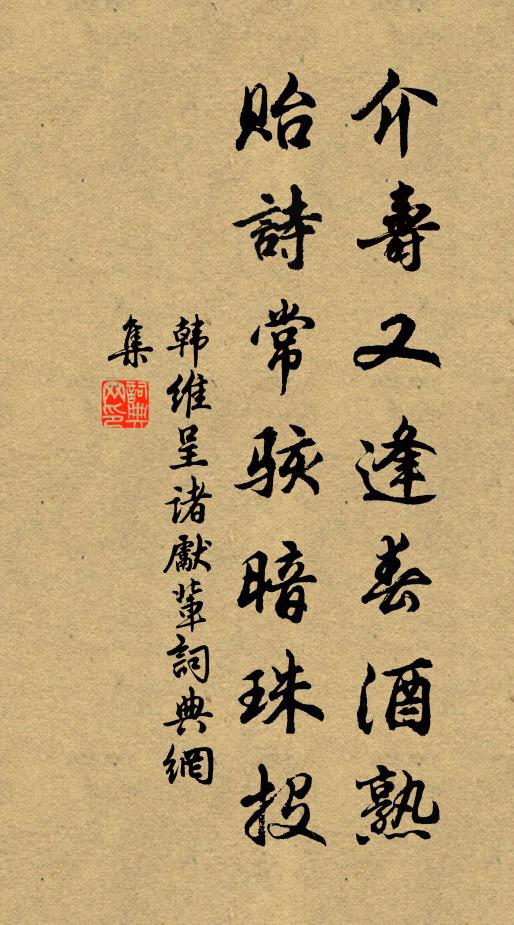 介壽又逢春酒熟
貽詩常駭暗珠投
韩維呈诸獻輩詞典網
集
詞典網印